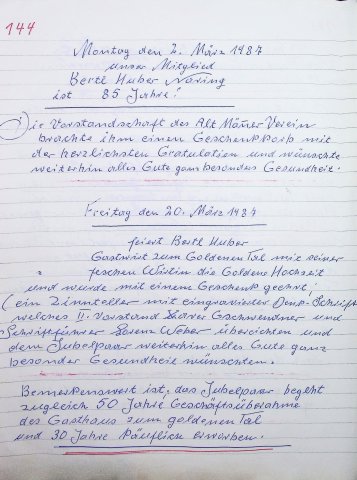 144
Montag den 2. März 1987
unser Mitglied
Bertl Huber Naring
ist 85 Jahre!
Die Vorstandschaft des Alt Männer Verein
brachte ihm einen Geschenkkorb mit
der herzlichsten Gratulation und wünschte
weiterhin alles Gute ganz besonders Gesundheit.
Freitag den 20. März 1987
feiert Bertl Huber
Gastwirt zum Goldenen Tal mit seiner
feschen Wirtin die Goldene Hochzeit
und wurde mit einem Geschenk geehrt,
(ein Zinnteller mit eingravierter Denk-Schrift
welches II. Vorstand Xaver Gschwendner und
Schriftführer Lorenz Weber übereichten und
dem Jubelpaar weiterhin alles Gute ganz
besonder Gesundheit wünschten.
Bemerkenswert ist, das Jubelpaar begeht
zugleich 50 Jahre Geschäftsüberahme
des Gasthaus zum goldenen Tal
und 30 Jahre käuflich erworben.